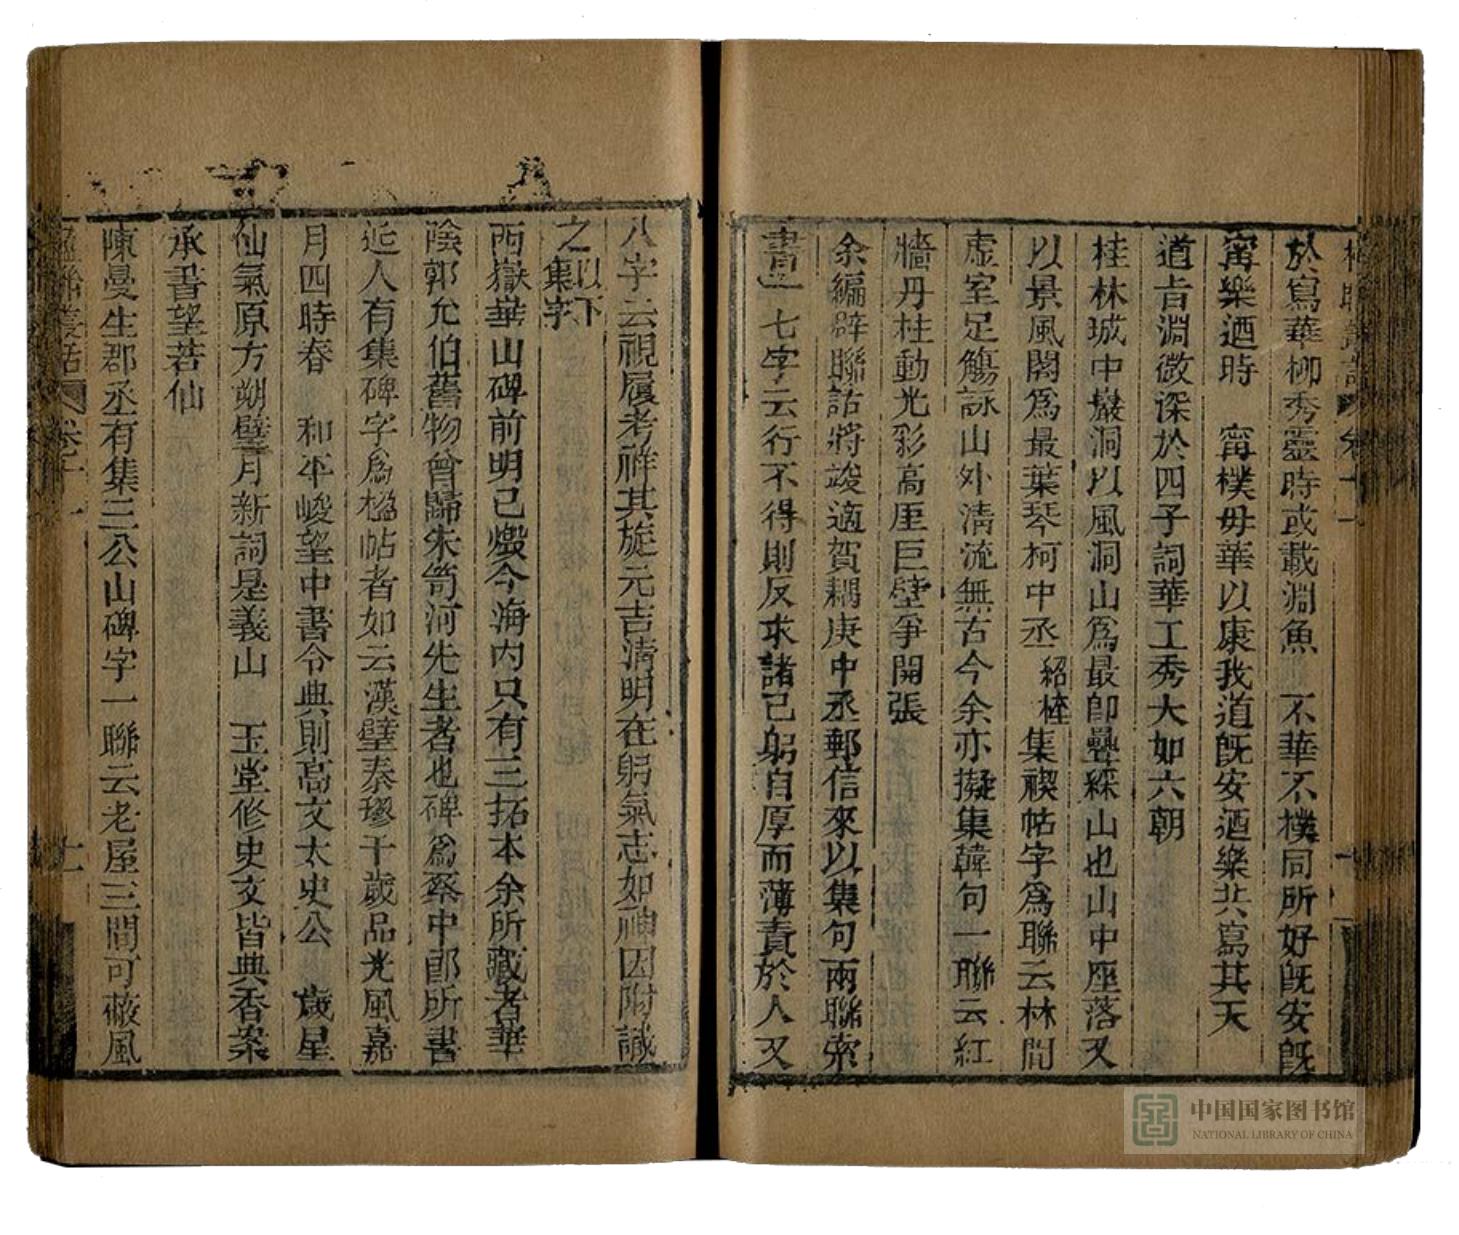 楹聯叢話 卷十一
於寫華柳秀靈時或載淵魚 不華不樸同所好既安既
甯樂迺時 甯樸毋華以康我道既安迺樂共寫其天
道旨淵微深於四子詞華工秀大如六朝
桂林城中巖洞以風洞山爲最卽疊綵山也山中座落又
以景風閣爲最葉琴柯中丞紹楏集禊帖字爲聯云林間
虛室足觴詠山外淸流無古今余亦擬集韓句一聯云紅
牆丹柱動光彩高厓巨壁爭開張
余編辟聯話將竣適賀耦庚中丞郵信來以集句兩聯索
書一七字云行不得則反求諸己躬自厚而薄責於人又
八字云視履考祥其旋元吉淸明在躬氣志如神因附誠
之以下集字
西嶽華山碑前明已燬今海內只有三拓本余所藏者華
陰郭允伯舊物曾歸朱笥河先生者也碑爲蔡中郎所書
近人有集碑字爲楹帖者如云漢璧秦璆千歲品光風嘉
月四時春 和平峻望中書令典則高文太史公 歲星
仙氣原方朔璧月新詞是義山 玉堂修史文皆典香案
承書望若仙
陳曼生郡丞有集三公山碑字一聯云老屋三間可蔽風
楹聯叢話 卷十一 十一
中国国家图书馆
NATIONAL LIBRARY OF CHINA